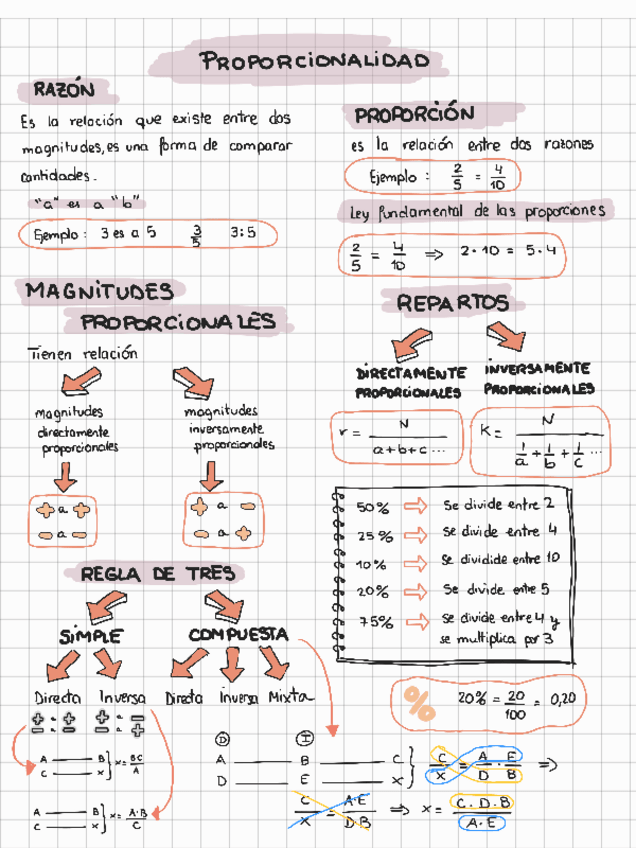 PROPORCIONALIDAD
RAZÓN
Es la relación que existe entre dos
magnitudes, es una forma de comparar
cantidades.
"a" es a "b"
Ejemplo : 3 es a 5 3/5 3:5
PROPORCIÓN
es la relación entre dos razones
Ejemplo : 2/5 = 4/10
Ley fundamental de las proporciones
2/5 = 4/10 => 2·10 = 5·4
MAGNITUDES
PROPORCIONALES
Tienen relación
magnitudes
directamente
proporcionales
magnitudes
inversamente
proporcionales
+ a +
- a -
+ a -
- a +
REPARTOS
DIRECTAMENTE
PROPORCIONALES
INVERSAMENTE
PROPORCIONALES
r = N / a+b+c ...
K = N / 1/a + 1/b + 1/c ...
50% Se divide entre 2
25% Se divide entre 4
10% Se dividide entre 10
20% Se divide entre 5
75% Se divide entre 4 y
se multiplica por 3
% 20% = 20/100 = 0,20
REGLA DE TRES
SIMPLE
COMPUESTA
Directa Inversa
Directa Inversa Mixta
+ - +
- - -
+ - -
- - +
A B
C x
x = BC/A
A B
C x
x = A·B/C
D I
A B C
D E x
C/x = A/D · E/B =>
C/x = A·E/D·B => x = C·D·B/A·E